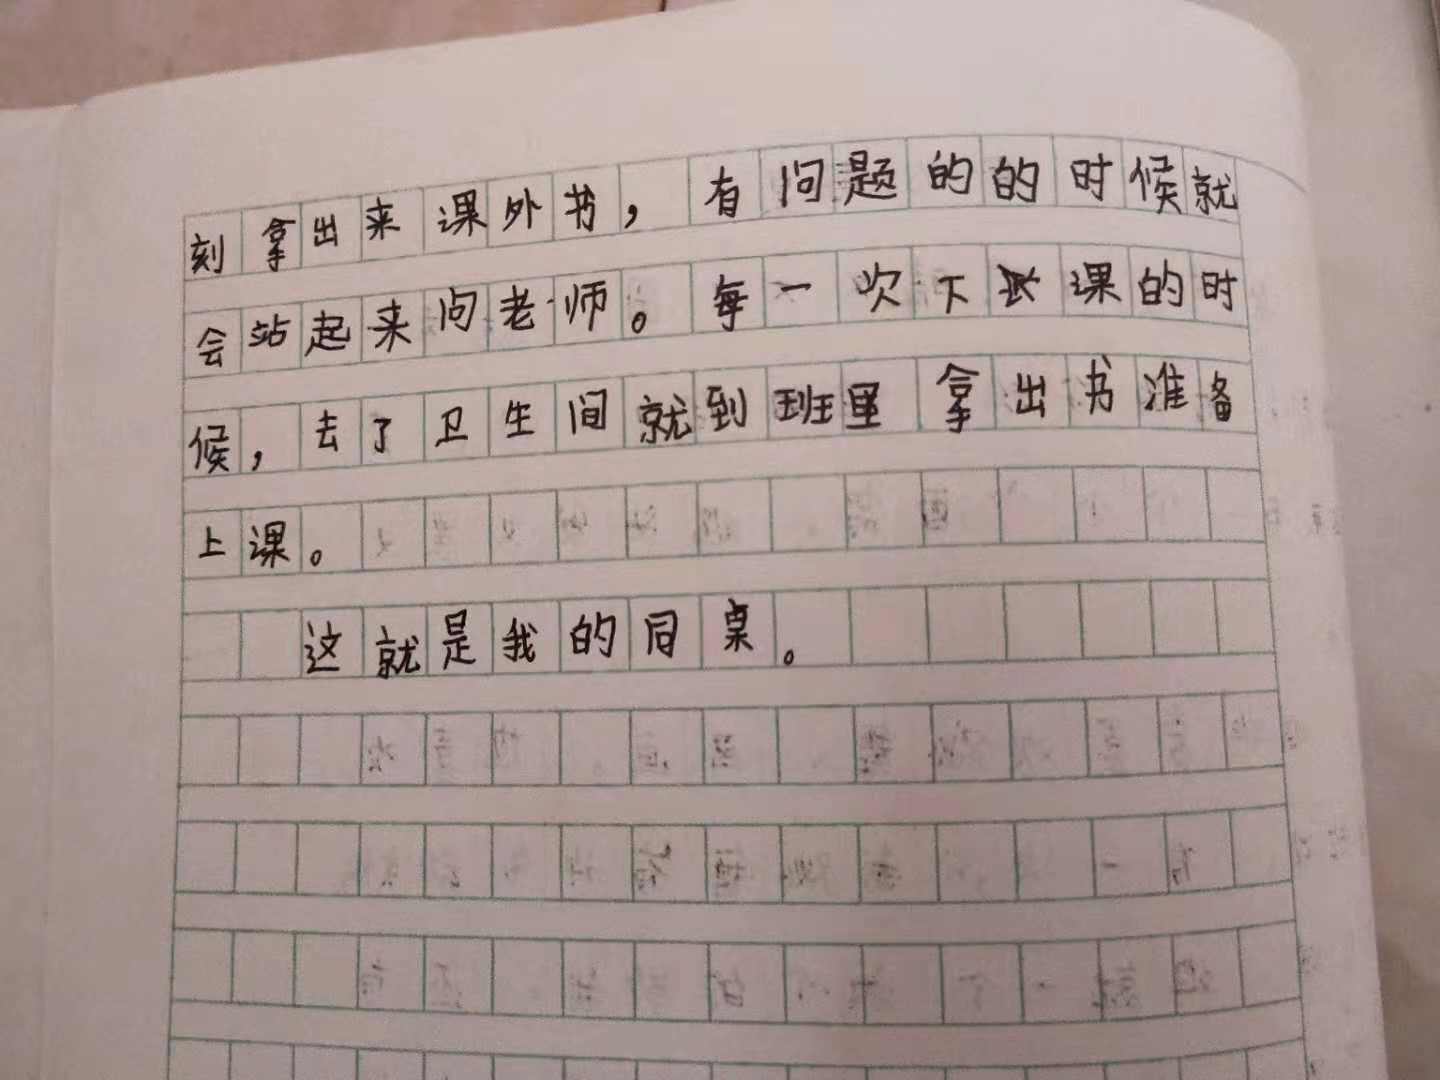 刻拿出来课外书，有问题的的时候就
会站起来问老师。每一次下课的时
候，去了卫生间就到班里拿出书准备
上课。
这就是我的同桌。